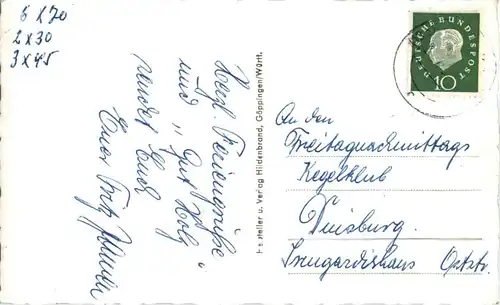 6 x 20
2 x 30
3 x 45
Herzl. Feriengrüße
und „Gut Holz"
sendet Euch
Euer Fritz
Hersteller u. Verlag Hildenbrand, Göppingen/Württ.
DEUTSCHE BUNDESPOST
10
An den
Freitagnachmittags
Kegelklub
Duisburg.
Irmgardishaus